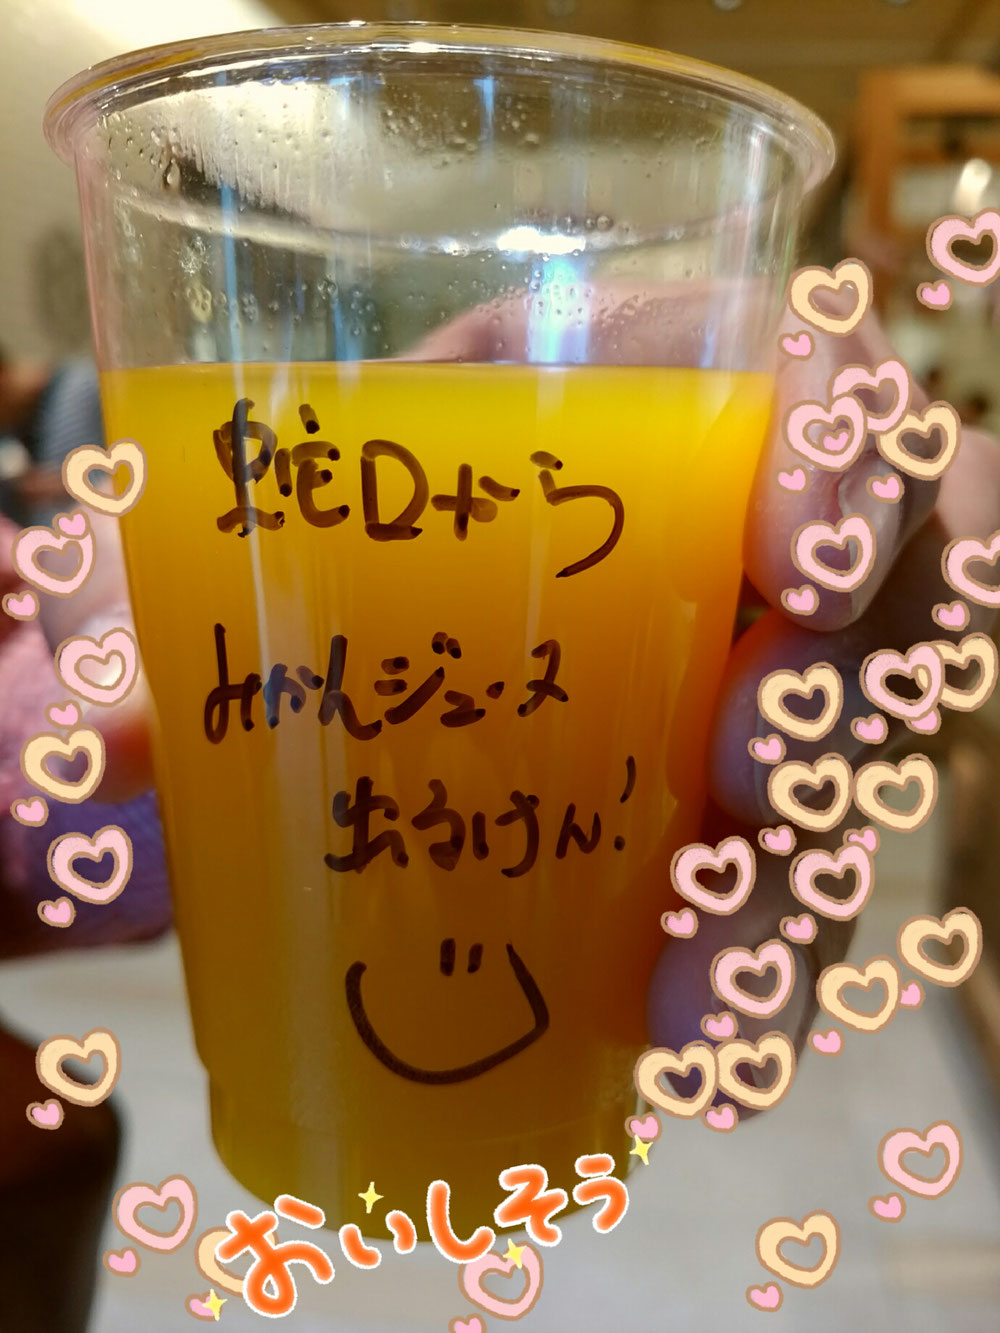 蛇口から
みかんジュース
出るけん!
おいしそう